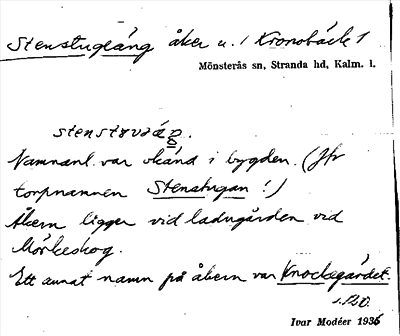 Stenstugeäng åker u. / Kronobäck 1
Mönsterås sn, Stranda hd, Kalm. l.
Namnanl. var okänd i bygden. (Jfr
torpnamnen Stenstugan !)
Åkern ligger vid ladugården vid
Mörkeskog.
Ett annat namn på åkern var Knockegärdet.
Ivar Modéer 1936